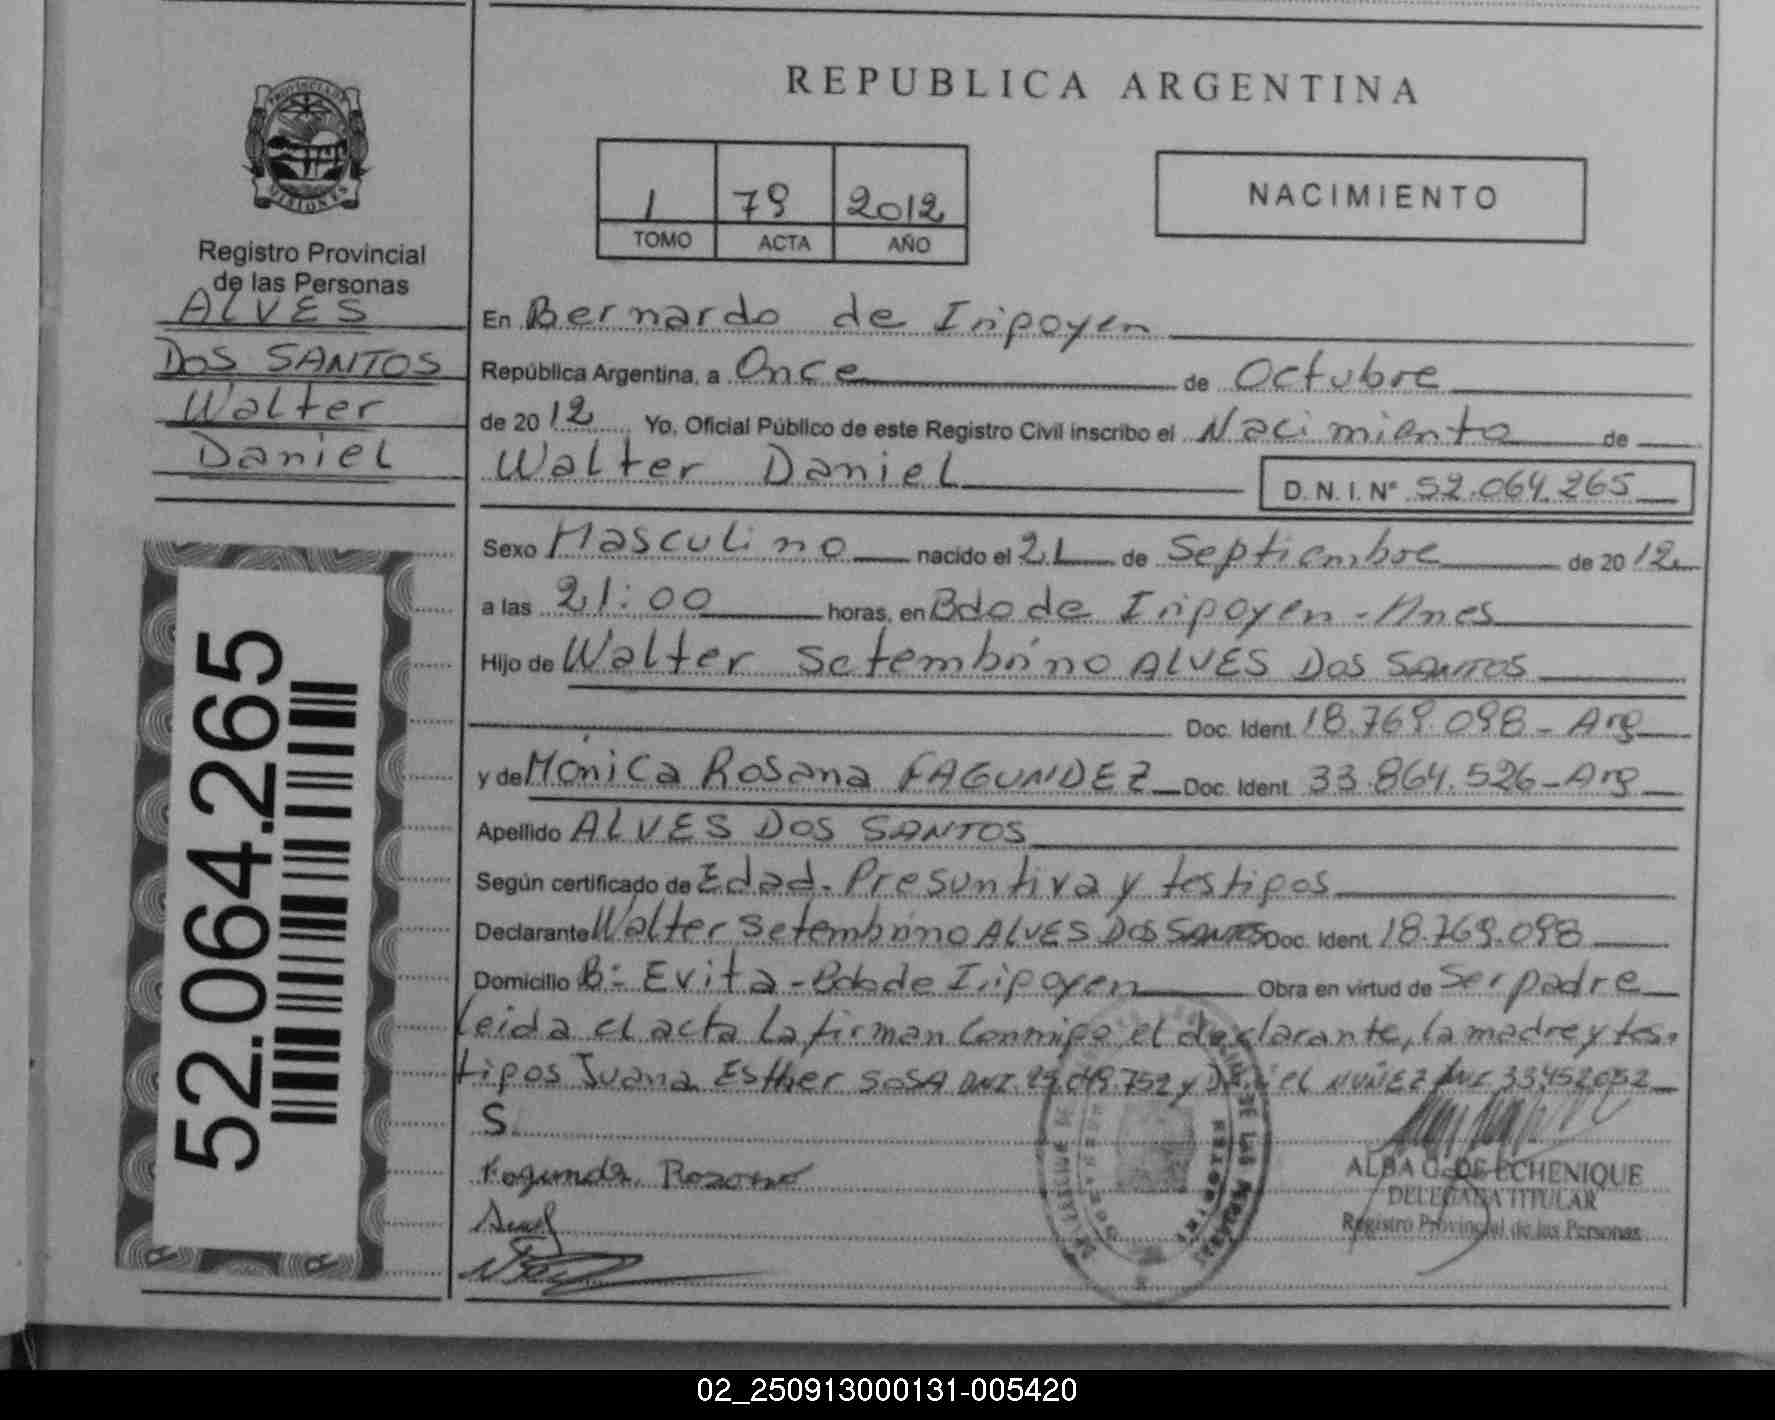 REPUBLICA ARGENTINA
PROVINCIA DE
MISIONES
Registro Provincial
de las Personas
ALVES
DOS SANTOS
Walter
Daniel
52.064.265
1 79 2012
TOMO ACTA AÑO
NACIMIENTO
En Bernardo de Irigoyen
República Argentina, a Once de Octubre
de 2012 Yo, Oficial Público de este Registro Civil inscribo el Nacimiento de
Walter Daniel D.N.I. Nº 52.064.265
Sexo Masculino nacido el 21 de Septiembre de 2012
a las 21:00 horas, en Bdo de Irigoyen - Mnes
Hijo de Walter Setembrino ALVES DOS SANTOS
Doc. Ident. 18.769.098 - Arg
y de Mónica Rosana FAGUNDEZ Doc. Ident. 33.864.526 - Arg
Apellido ALVES DOS SANTOS
Según certificado de Edad. Presuntiva y testigos
Declarante Walter Setembrino ALVES DOS SANTOS Doc. Ident. 18.769.098
Domicilio Bº Evita - Bdo de Irigoyen Obra en virtud de Ser padre
Leida el acta la firman Conmigo el declarante, la madre y tes-
tigos Juana Esther SOSA DNI. 25.049.752 y Daniel NUÑEZ DNI 33452052
S.
Fagundez Rosana
ALBA C. DE ECHENIQUE
DELEGADA TITULAR
Registro Provincial de las Personas
02_250913000131-005420